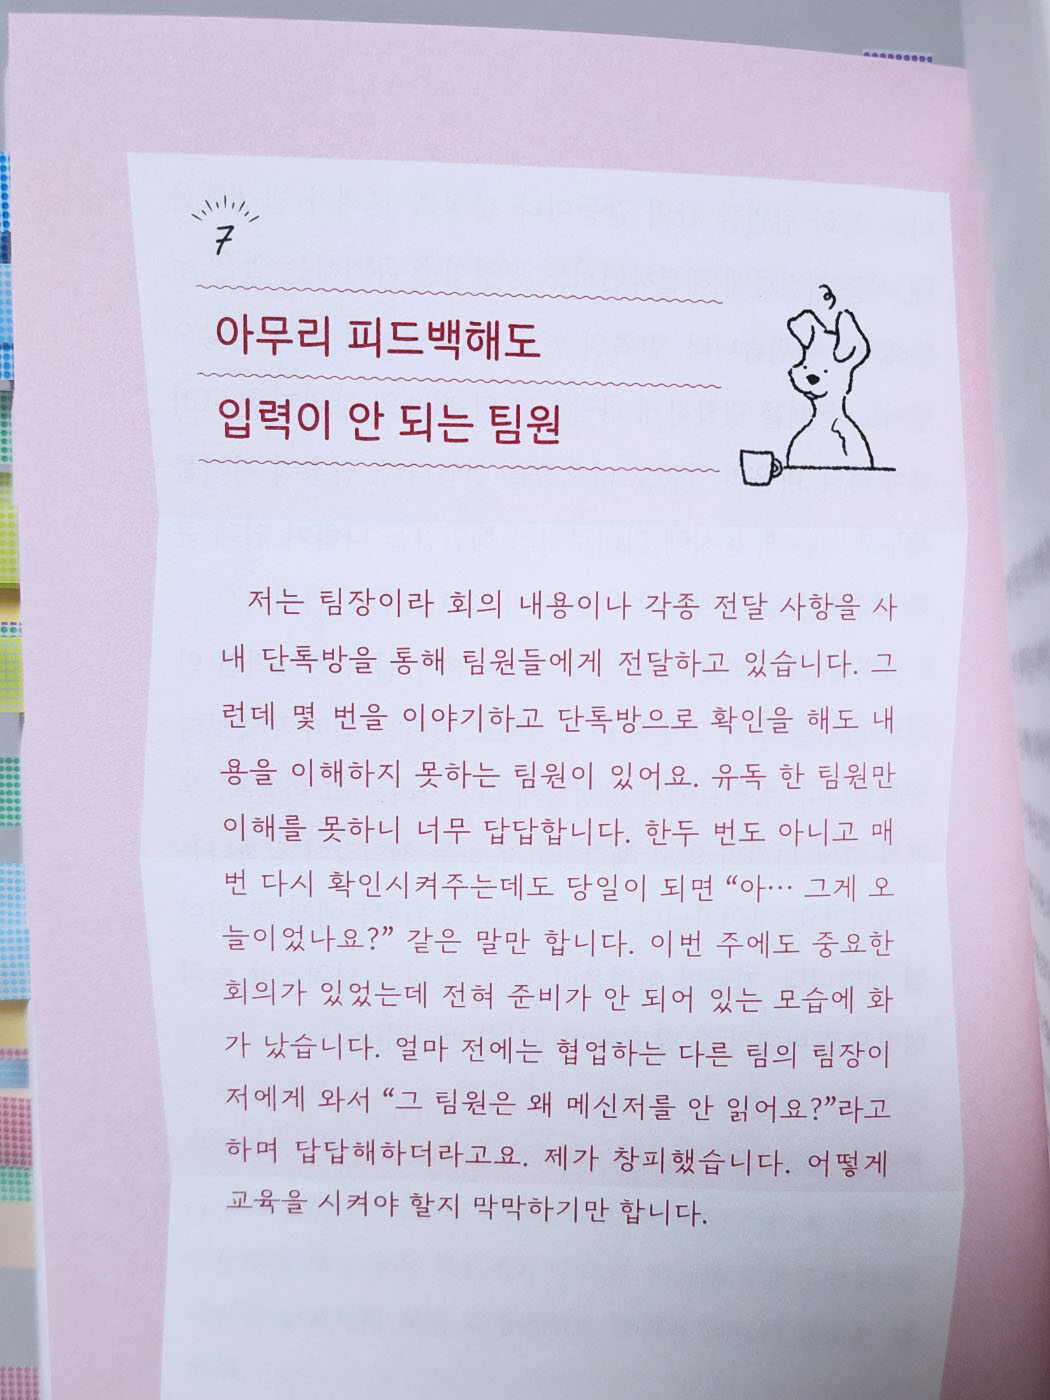 7
아무리 피드백해도
입력이 안 되는 팀원
저는 팀장이라 회의 내용이나 각종 전달 사항을 사
내 단톡방을 통해 팀원들에게 전달하고 있습니다. 그
런데 몇 번을 이야기하고 단톡방으로 확인을 해도 내
용을 이해하지 못하는 팀원이 있어요. 유독 한 팀원만
이해를 못하니 너무 답답합니다. 한두 번도 아니고 매
번 다시 확인시켜주는데도 당일이 되면 “아… 그게 오
늘이었나요?” 같은 말만 합니다. 이번 주에도 중요한
회의가 있었는데 전혀 준비가 안 되어 있는 모습에 화
가 났습니다. 얼마 전에는 협업하는 다른 팀의 팀장이
저에게 와서 “그 팀원은 왜 메신저를 안 읽어요?”라고
하며 답답해하더라고요. 제가 창피했습니다. 어떻게
교육을 시켜야 할지 막막하기만 합니다.